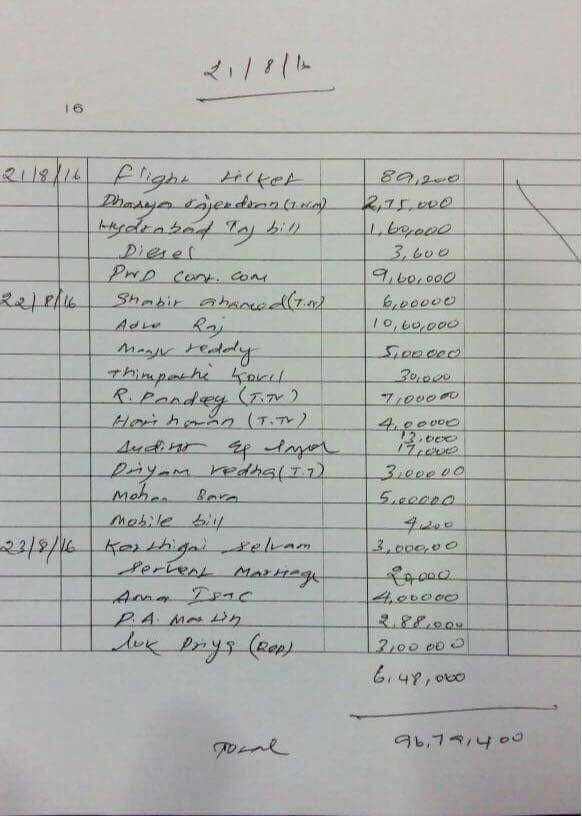 21/8/16
16
21/8/16 Flight ticket 89,200
Dhanya rajendran (T.N.M) 2,75,000
Hyderabad Taj bill 1,60,000
Diesel 3,600
PWD Cont. com 9,60,000
22/8/16 Shabir ahamed (T.N) 6,00000
Advo Raj 10,60,000
Manju reddy 5,00000
Thirupathi Kovil 30,000
R. Pandey (T.TV) 7,00000
Hari haran (T.TV) 4,00000
13,000
Auditor 17,000
Priyam redha (T.T) 3,00000
Mohan 5,00000
Mobile bill 4,200
23/8/16 Karthigai Selvam 3,000,00
Servent Marriage 20,000
Anna 4,00000
P.A. Martin 2,88,000
Priya (REP) 3,00000
6,48,000
Total 96,79,400